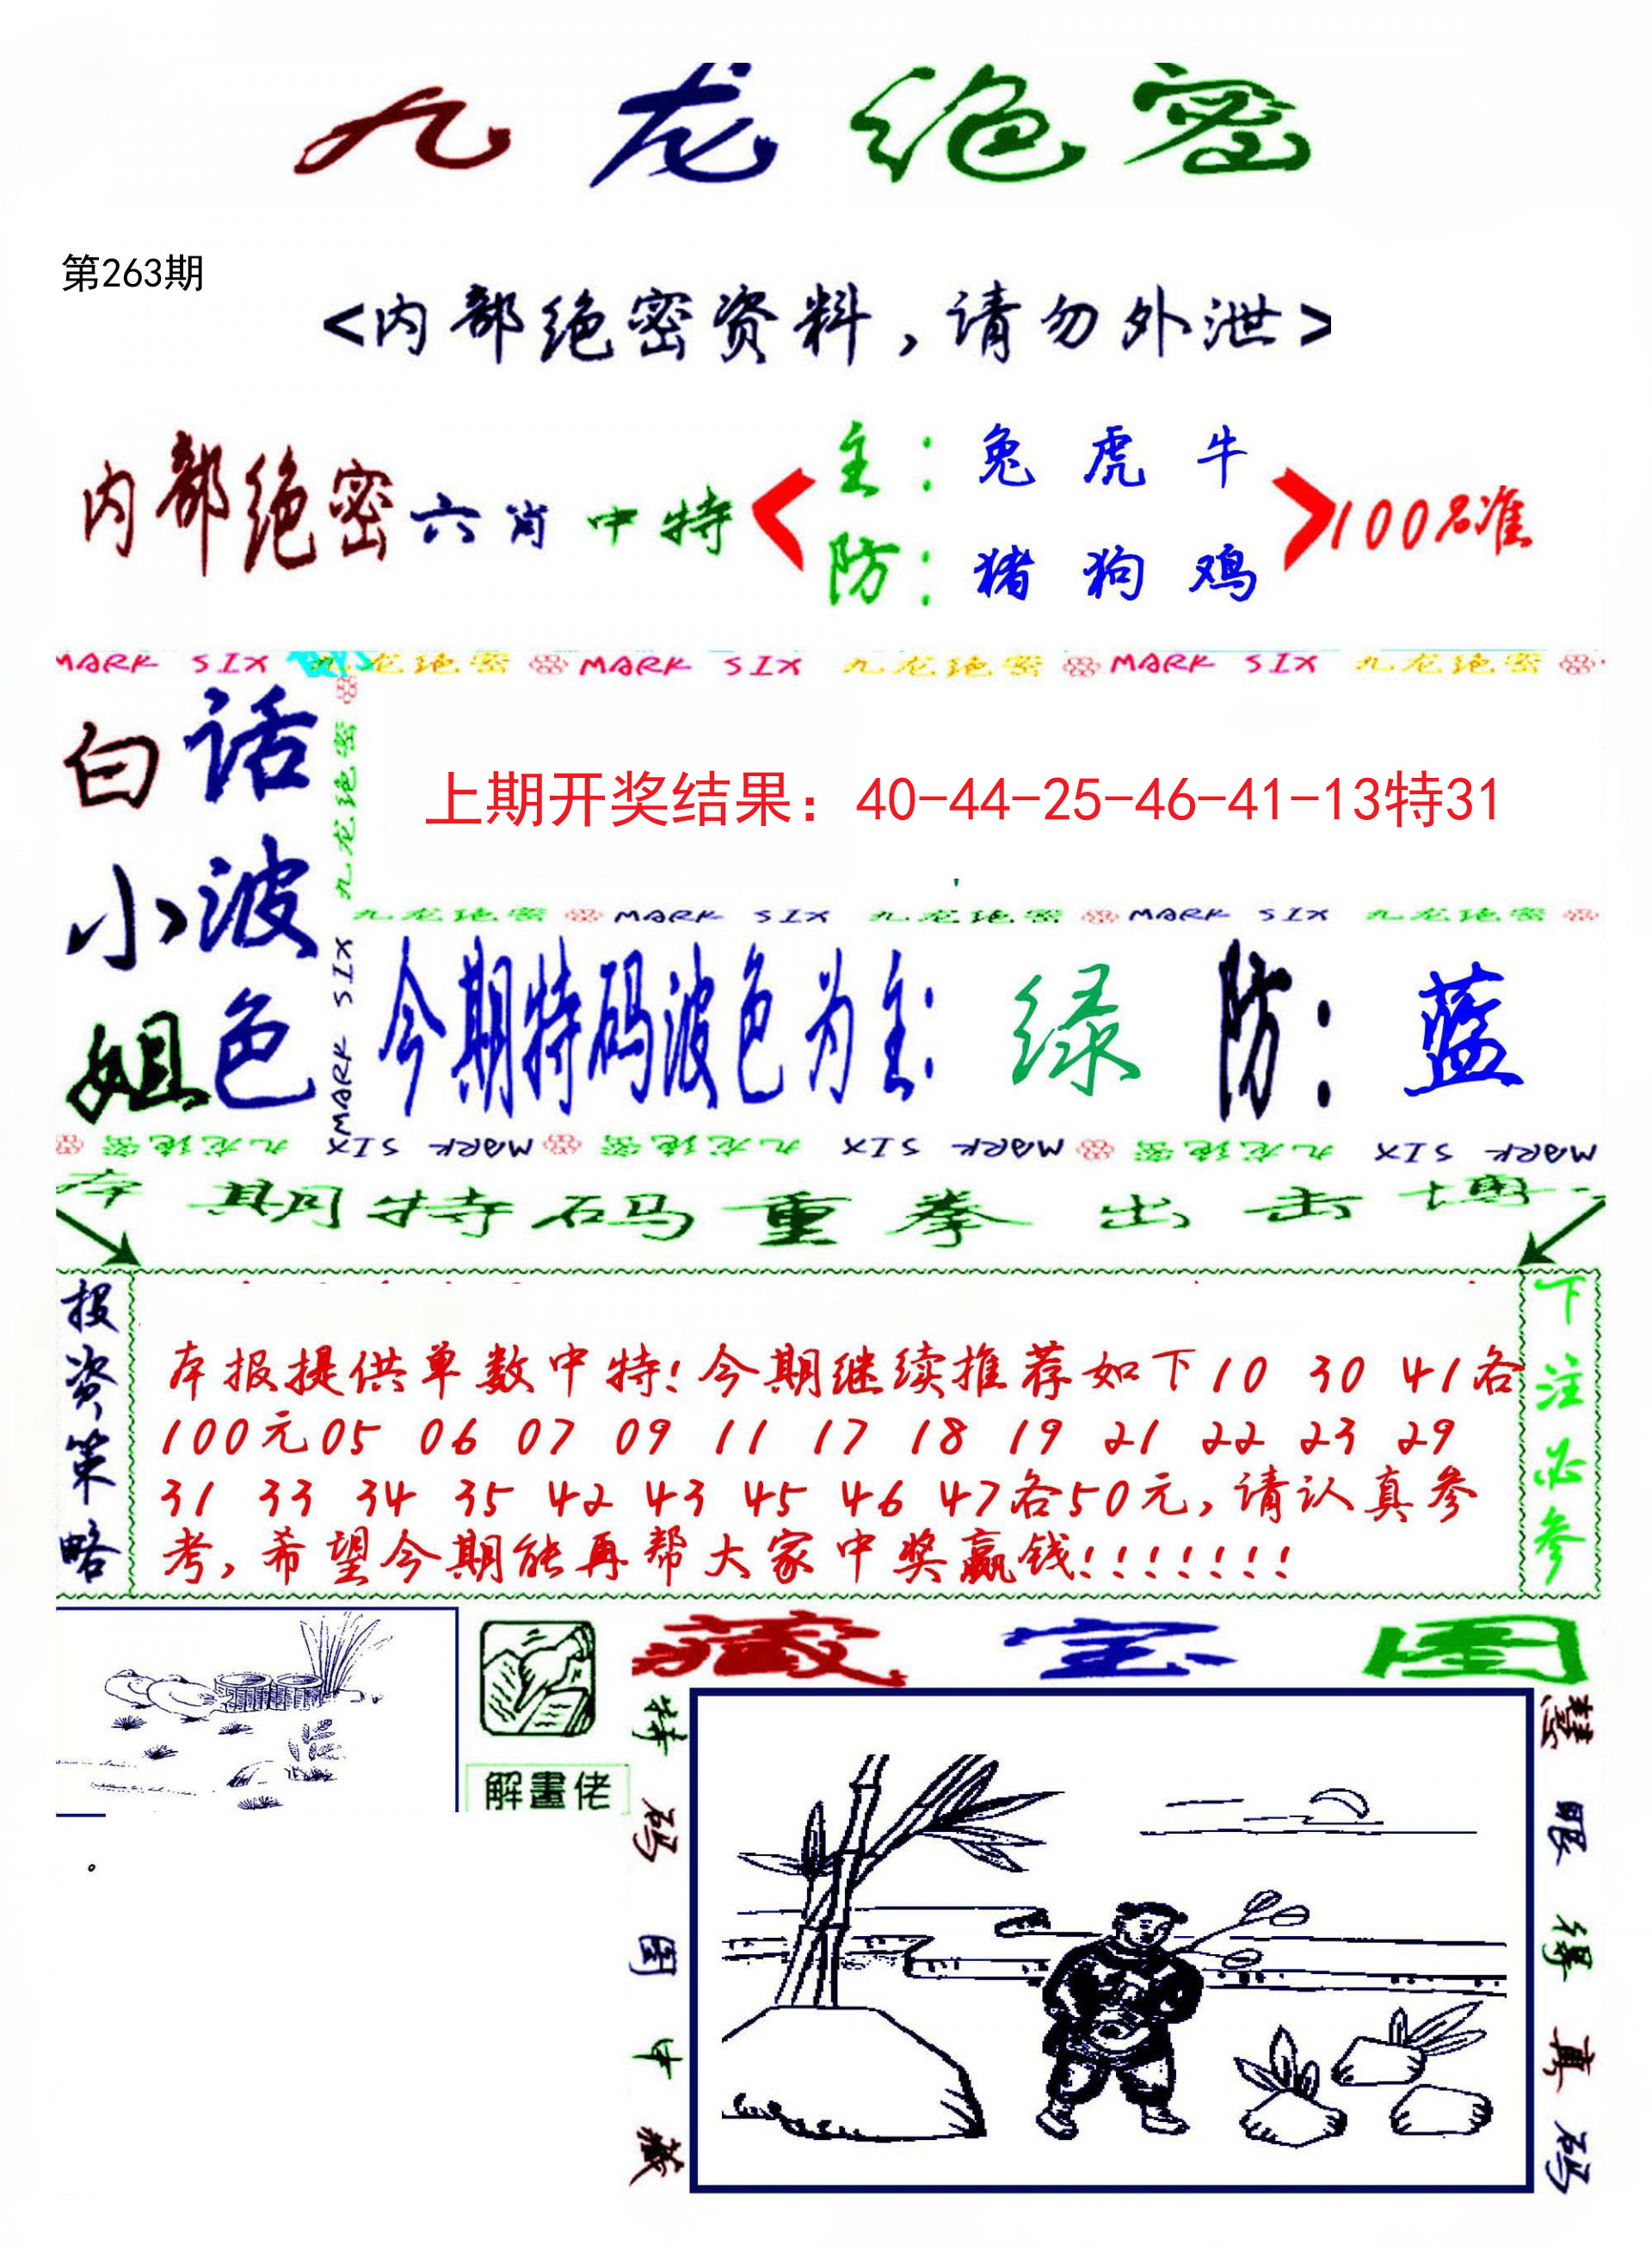 九龙绝密
第263期
<内部绝密资料,请勿外泄>
内部绝密六肖中特
主:兔虎牛
防:猪狗鸡
100%准
MARK SIX 九龙绝密 MARK SIX 九龙绝密 MARK SIX 九龙绝密
白小姐
话波色
九龙绝密
MARK SIX
上期开奖结果：40-44-25-46-41-13特31
九龙绝密 MARK SIX 九龙绝密 MARK SIX 九龙绝密
今期特码波色为主:绿 防:蓝
MARK SIX 九龙绝密 MARK SIX 九龙绝密 MARK SIX 九龙绝密
本期特码重拳出击博
投资策略
本报提供单数中特!今期继续推荐如下10 30 41各
100元05 06 07 09 11 17 18 19 21 22 23 29
31 33 34 35 42 43 45 46 47各50元,请认真参
考,希望今期能再帮大家中奖赢钱!!!!!!!
下注必参
解畫佬
藏宝图
特码图中藏
慧眼得真码